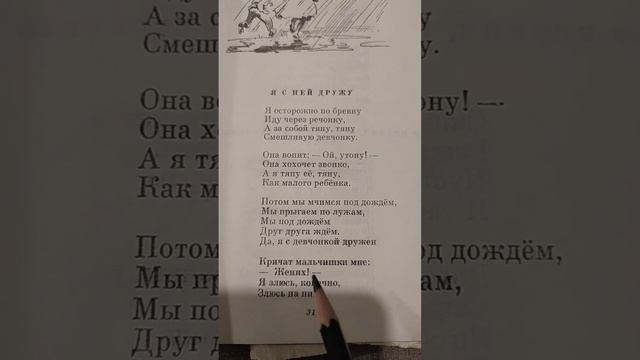 Я С НЕЙ ДРУЖУ
Я осторожно по бревну
Иду через речонку,
А за собой тяну, тяну
Смешливую девчонку.
Она вопит: — Ой, утону! —
Она хохочет звонко,
А я тяну её, тяну,
Как малого ребёнка.
Потом мы мчимся под дождём,
Мы прыгаем по лужам,
Мы под дождём
Друг друга ждём.
Да, я с девчонкой дружен
Кричат мальчишки мне:
— Жених! —
Я злюсь, конечно,
Злюсь на
31